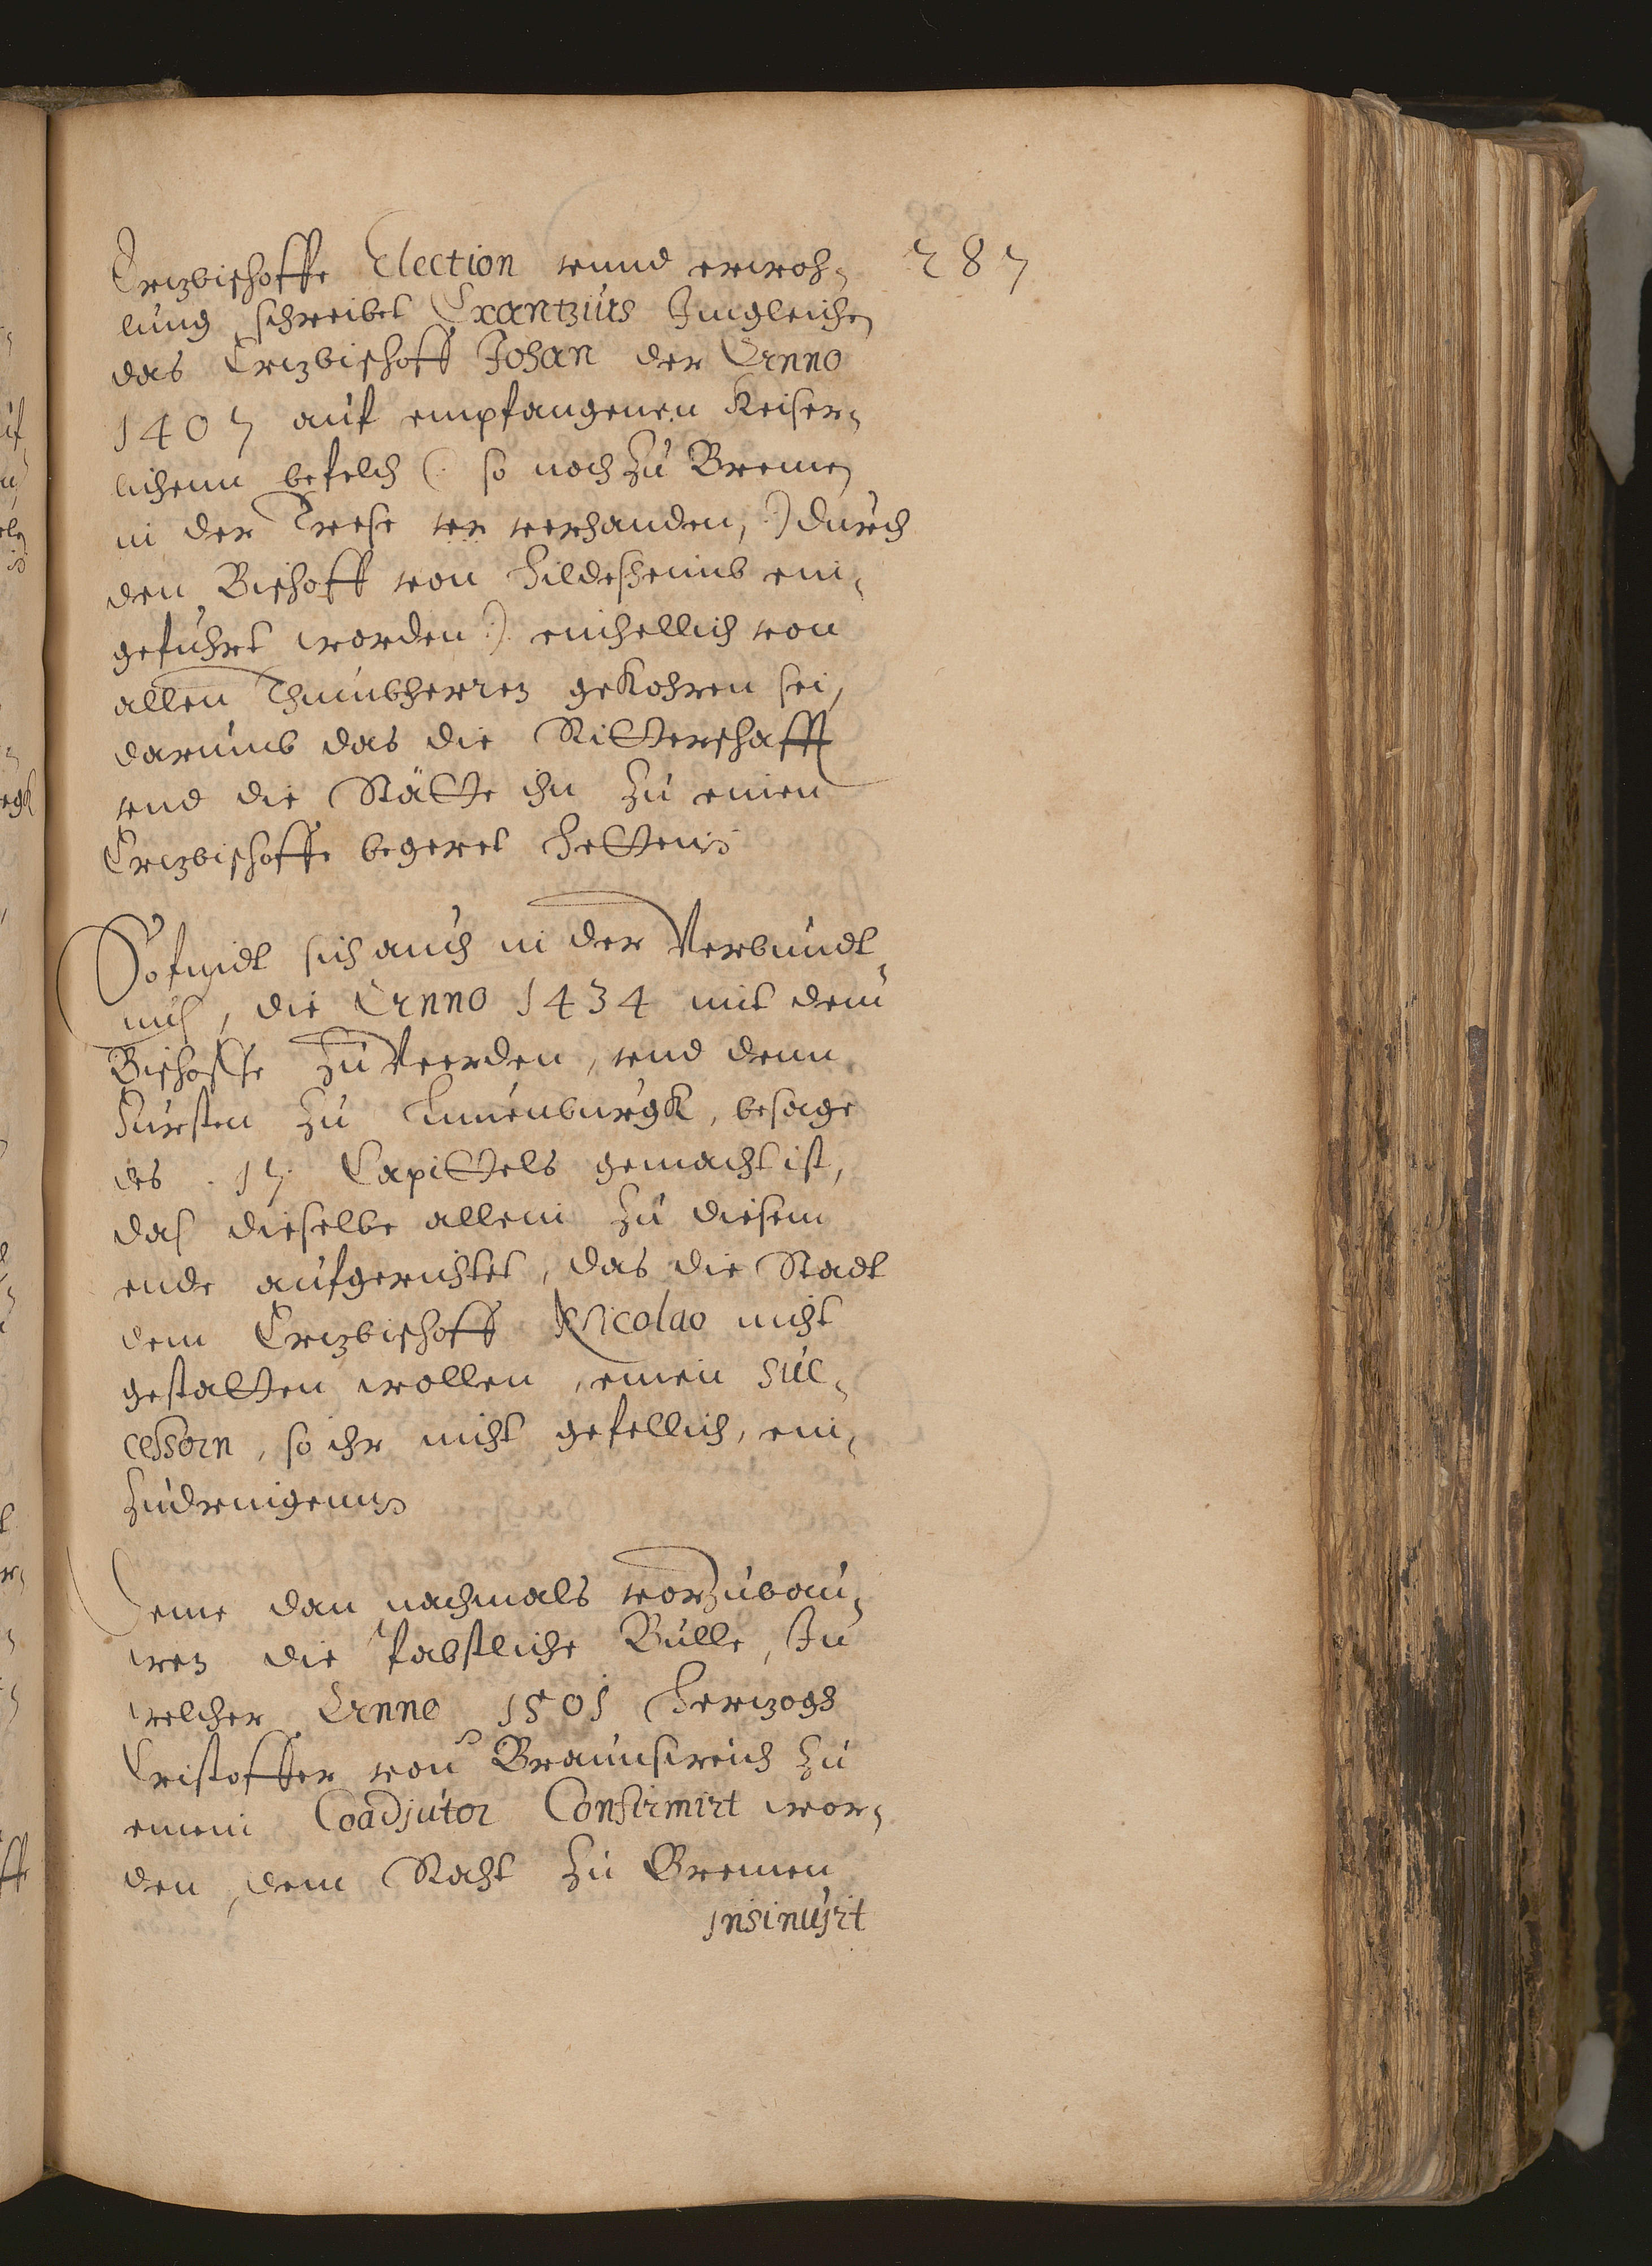 287
Ertzbischoffe Election vnnd erweh-
lung schreibet Crantzius Imgleichen
das Ertzbischoff Johan der Anno
1407 auf empfangenen Keiser-
lichenn befelch (: so noch zu Bremen
in der Trese ver verhanden, :) durch
den Bischoff von Hildesheimb ein-
geführt worden :) einhellich von
allen Thumbherren gekohren sei,
darumb das die Ritterschafft
vnd die Stätte ihn zu einen
Ertzbischoffe begeret hetten
So findt sich auch in der Verbundt-
nuß, die Anno 1434 mit dem
Bischoffe zu Veerden, vnd denn
Fursten zu Luneuburgk, besage
des .17. Capittels gemacht ist,
daß dieselbe allein zu diesem
ende aufgerichtet, das die Stadt
dem Ertzbischoff Nicolao nicht
gestatten wollen, einen suc-
cessorn, so ihr nicht gefellich, ein-
zudrengenn
Deme dan nachmals vorzubau-
wen die Pabstliche Bulle, In
welcher Anno 1501 Hertzogs
Cristoffer von Braunschweich zu
einem Coadjutor Confirmirt wor-
den, dem Raht zu Bremen
insinuirt